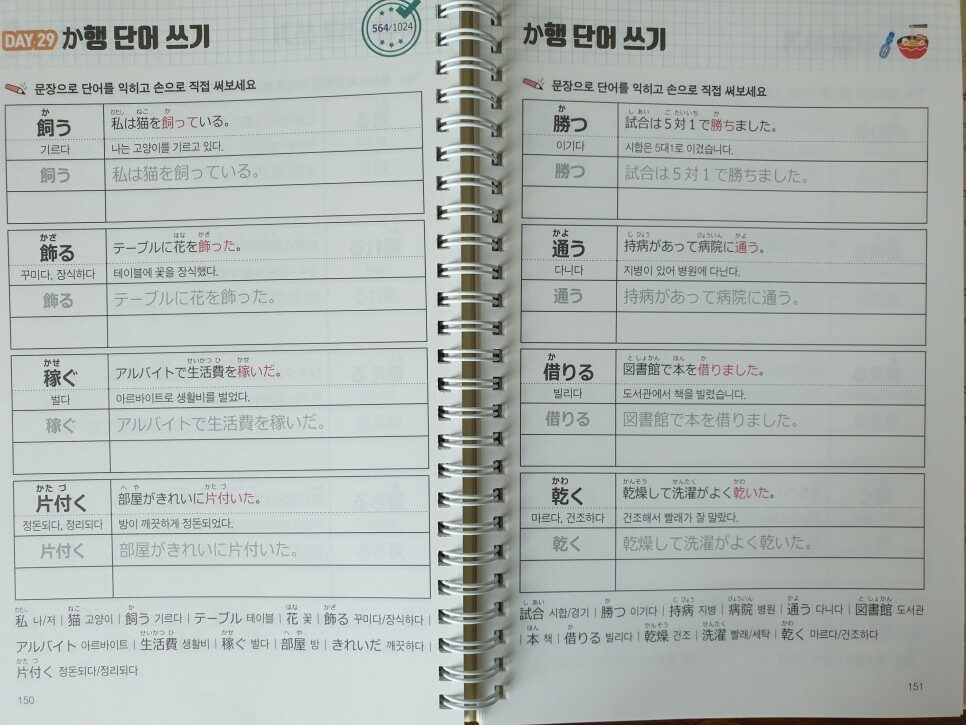 DAY 29 か행 단어 쓰기
564/1024
문장으로 단어를 익히고 손으로 직접 써보세요
か
飼う
기르다
わたし ねこ か
私は猫を飼っている。
나는 고양이를 기르고 있다.
飼う
私は猫を飼っている。
かざ
飾る
꾸미다, 장식하다
はな かざ
テーブルに花を飾った。
테이블에 꽃을 장식했다.
飾る
テーブルに花を飾った。
かせ
稼ぐ
벌다
せいかつ ひ かせ
アルバイトで生活費を稼いだ。
아르바이트로 생활비를 벌었다.
稼ぐ
アルバイトで生活費を稼いだ。
かた づ
片付く
정돈되다, 정리되다
へ や かた づ
部屋がきれいに片付いた。
방이 깨끗하게 정돈되었다.
片付く
部屋がきれいに片付いた。
わたし ねこ か はな かざ
私 나/저 | 猫 고양이 | 飼う 기르다 | テーブル 테이블 | 花 꽃 | 飾る 꾸미다/장식하다 |
せいかつ ひ かせ へ や
アルバイト 아르바이트 | 生活費 생활비 | 稼ぐ 벌다 | 部屋 방 | きれいだ 깨끗하다 |
かた づ
片付く 정돈되다/정리되다
150
か행 단어 쓰기
문장으로 단어를 익히고 손으로 직접 써보세요
か
勝つ
이기다
し あい ご たいいち か
試合は5対1で勝ちました。
시합은 5대1로 이겼습니다.
勝つ
試合は5対1で勝ちました。
かよ
通う
다니다
じ びょう びょういん かよ
持病があって病院に通う。
지병이 있어 병원에 다닌다.
通う
持病があって病院に通う。
か
借りる
빌리다
と しょかん ほん か
図書館で本を借りました。
도서관에서 책을 빌렸습니다.
借りる
図書館で本を借りました。
かわ
乾く
마르다, 건조하다
かんそう せんたく かわ
乾燥して洗濯がよく乾いた。
건조해서 빨래가 잘 말랐다.
乾く
乾燥して洗濯がよく乾いた。
し あい か じ びょう びょういん かよ と しょかん
試合 시합/경기 | 勝つ 이기다 | 持病 지병 | 病院 병원 | 通う 다니다 | 図書館 도서관
ほん か かんそう せんたく かわ
| 本 책 | 借りる 빌리다 | 乾燥 건조 | 洗濯 빨래/세탁 | 乾く 마르다/건조하다
151